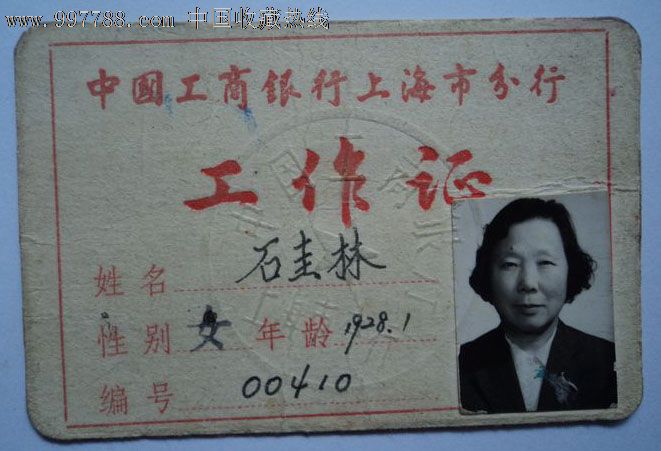 www.997788.com 中国收藏热线
中國工商銀行上海市分行
工作证
姓名 石圭林
性别 女 年龄 1928.1
编号 00410